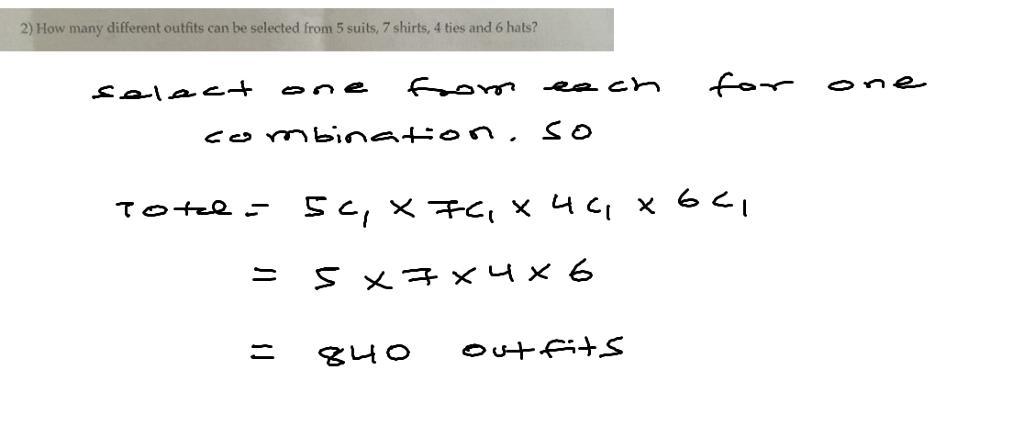 2) How many different outfits can be selected from 5 suits, 7 shirts, 4 ties and 6 hats?
select one from each for one
combination. so
Total = 5C₁ × 7C₁ × 4C₁ × 6C₁
= 5 × 7 × 4 × 6
= 840 outfits